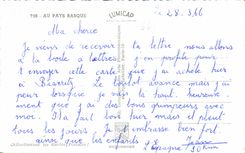 718 - AU PAYS BASQUE
LUMICAP
28.3.66
Ma chérie
Je viens de recevoir ta lettre nous allons
à la boîte à lettres j'en profite pour
t'envoyer cette carte que j'ai achetée hier
à Biarritz. Le avance mais j'ai
peur lorsque je vais là haut. heureuse-
ment que j'ai des bons grimpeurs avec
moi. Il a fait bon hier mais il pleut
tous les jours. Je t'embrasse bien fort.
ainsi que les enfants